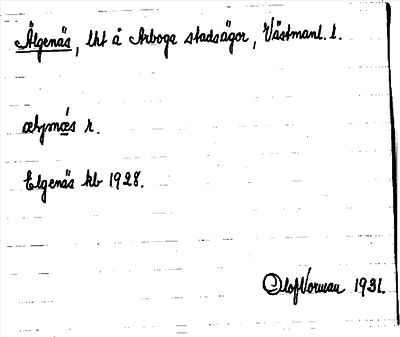 Älgenäs, lht å Arboga stadsägor, Västmanl. l.
r.
Elgenäs kb 1928.
Olof Vorman 1931.